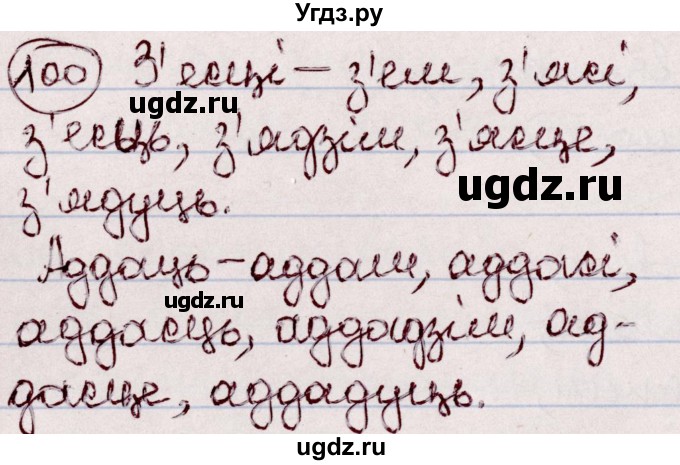 Угдз.ру
100 З'есці – з'ем, з'ясі,
з'есць, з'ядзім, з'ясце,
з'ядуць.
Аддаць – аддам, аддасі,
аддасць, аддадзім, ад-
дасце, аддадуць.
ugdz.ru
ugdz.ru
ugdz.ru
ugdz.ru
ugdz.ru